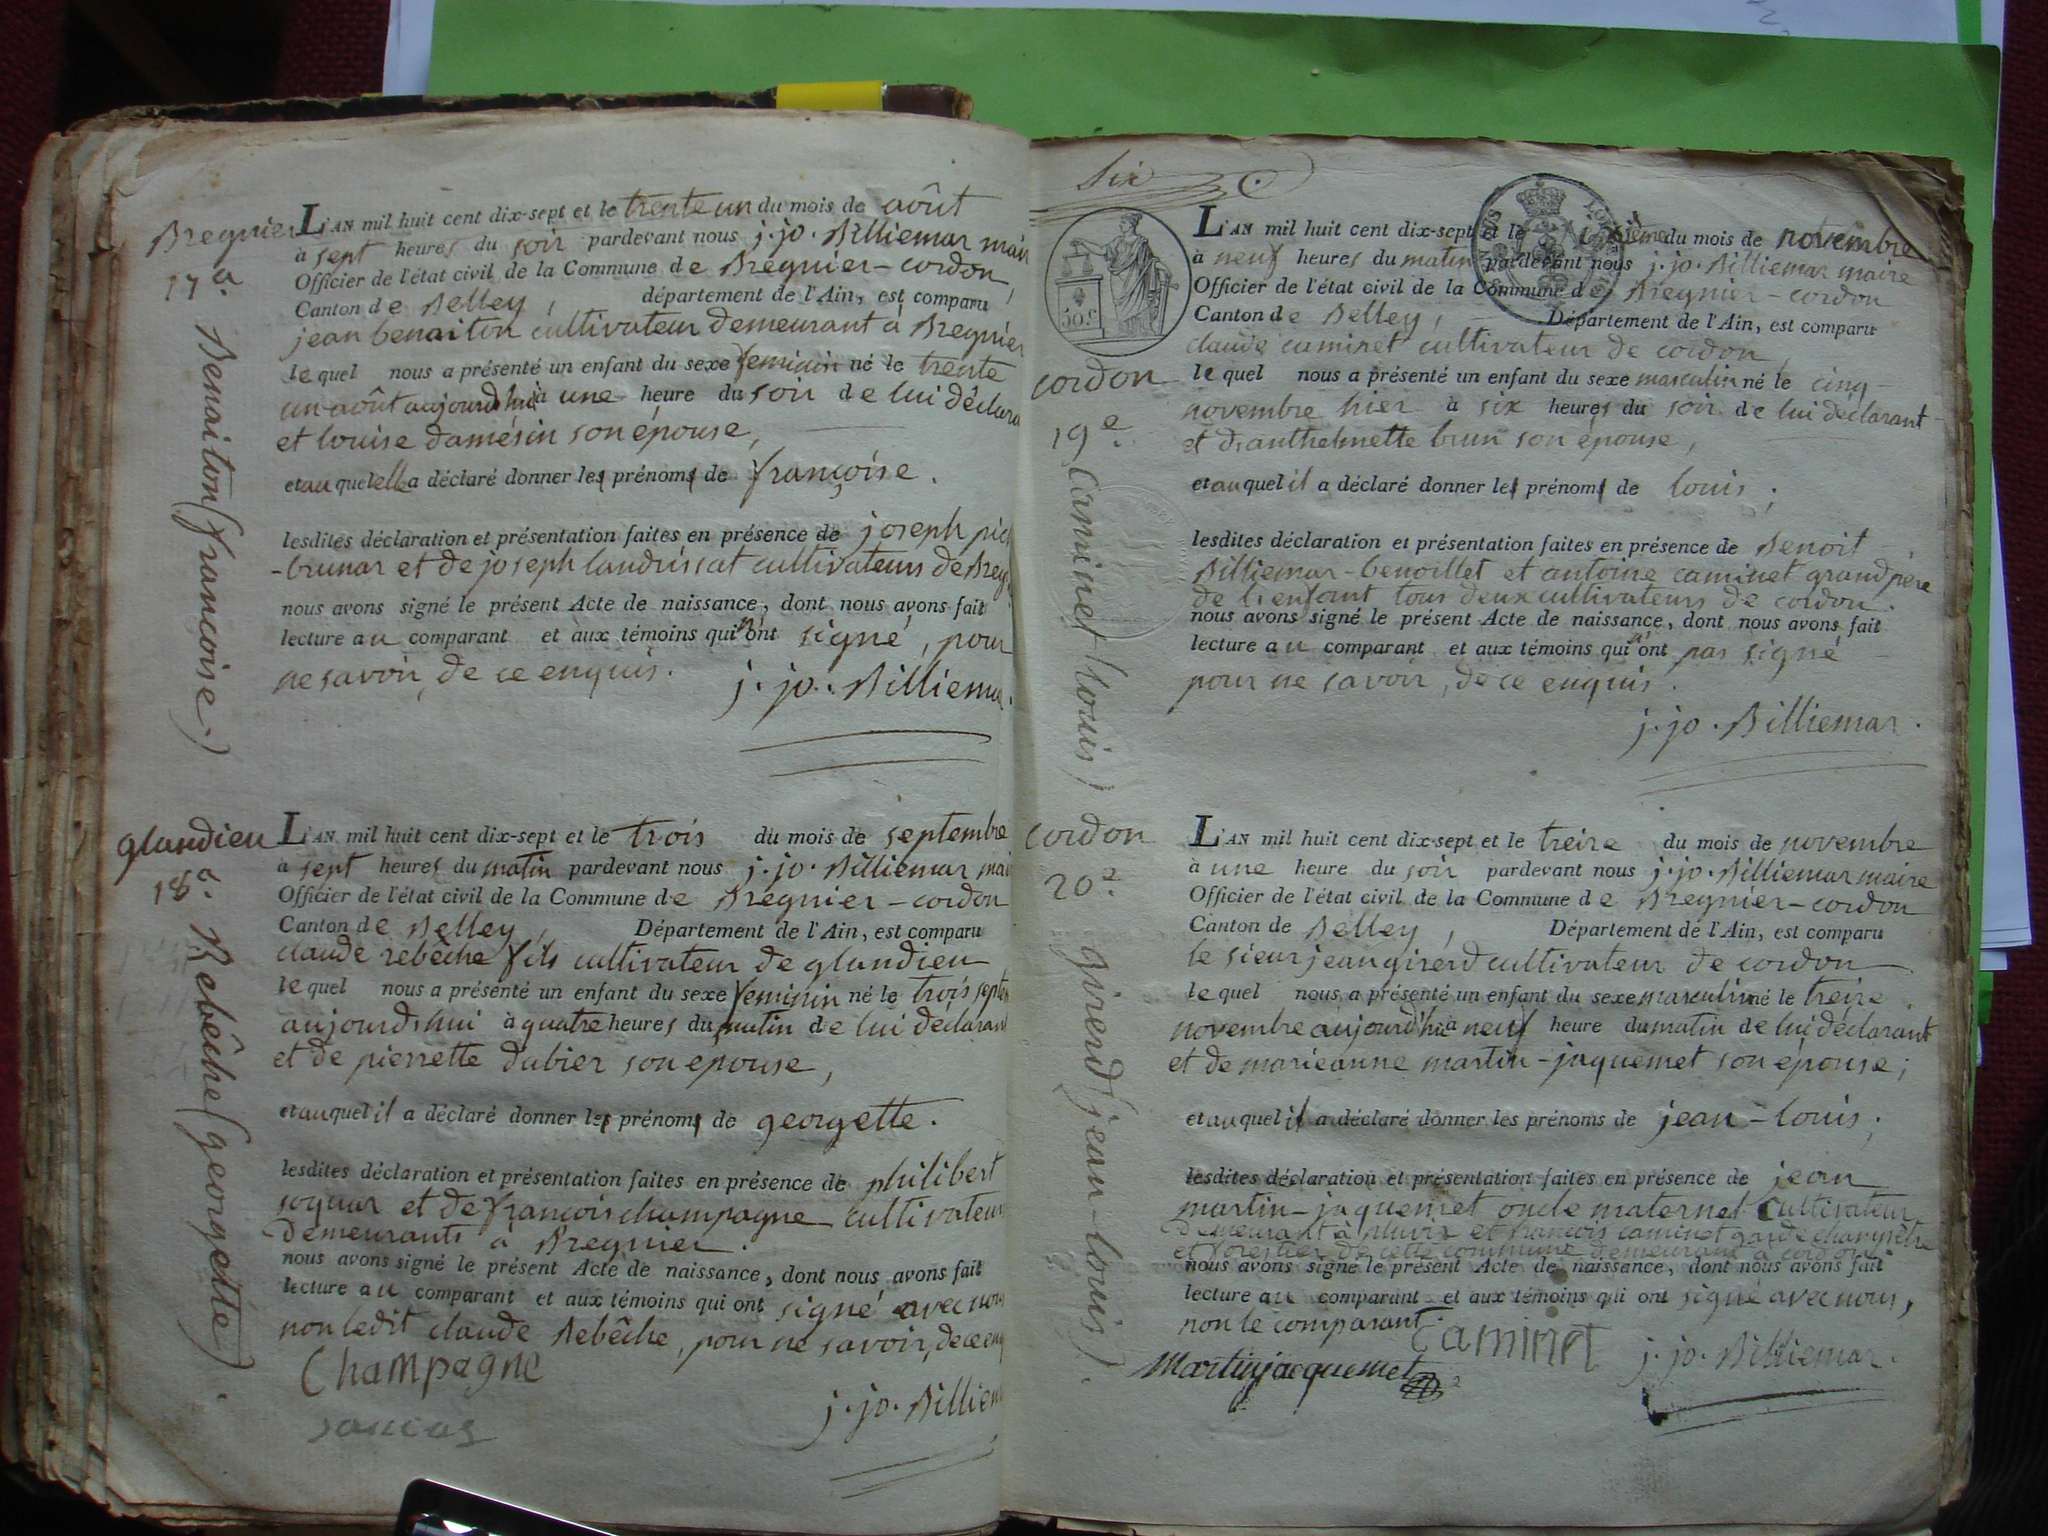 Bregnier
17e.
Benaiton (francoise.)
L'AN mil huit cent dix-sept et le trente un du mois de août
à sept heures du soir pardevant nous j. jo. Billiemar mair
Officier de l'état civil de la Commune de Bregnier-cordon,
Canton de Belley, département de l'Ain, est comparu
jean benaiton cultivateur demeurant à Bregnier
lequel nous a présenté un enfant du sexe feminin né le trente
un août aujourd'hui à une heure du soir de lui déclara
et louise damésin son épouse,
et au quel elle a déclaré donner les prénoms de françoise.
lesdites déclaration et présentation faites en présence de joseph pic
-brunar et de joseph landrissat cultivateurs de Breg
nous avons signé le présent Acte de naissance, dont nous avons fait
lecture au comparant et aux témoins qui n'ont signé, pour
ne savoir, de ce enquis. j. jo. Billiemar.
glandieu
18e.
Rebêche (georgette).
L'AN mil huit cent dix-sept et le trois du mois de septembre
à sept heures du matin pardevant nous j. jo. Billiemar mai
Officier de l'état civil de la Commune de Bregnier-cordon
Canton de Belley, Département de l'Ain, est comparu
claude rebêche fils cultivateur de glandieu
lequel nous a présenté un enfant du sexe feminin né le trois septem
aujourd'hui à quatre heures du matin de lui déclarant
et de pierrette dubier son epouse,
et auquel il a déclaré donner les prénoms de georgette.
lesdites déclaration et présentation faites en présence de philibert
soquar et de françois champagne cultivateurs
demeurants à Bregnier.
nous avons signé le présent Acte de naissance, dont nous avons fait
lecture au comparant et aux témoins qui ont signé avec nous
non ledit claude Rebêche, pour ne savoir, de ce enq
Champagne
j. jo. Billiem
six
50 c
cordon
19e.
Caminet (louis)
L'AN mil huit cent dix-sept et le du mois de novembre
à neuf heures du matin pardevant nous j. jo. Billiemar maire
Officier de l'état civil de la Commune de Bregnier-cordon
Canton de Belley, Département de l'Ain, est comparu
claude caminet cultivateur de cordon,
lequel nous a présenté un enfant du sexe masculin né le cinq
novembre hier à six heures du soir de lui déclarant
et d'anthelmette brun son épouse,
et auquel il a déclaré donner les prénoms de louis;
lesdites déclaration et présentation faites en présence de Benoit
Billiemar-benoillet et antoine caminet grand père
de l'enfant tous deux cultivateurs de cordon.
nous avons signé le présent Acte de naissance, dont nous avons fait
lecture au comparant et aux témoins qui n'ont pas signé
pour ne savoir, de ce enquis.
j. jo. Billiemar.
cordon
20e.
girerd (jean-louis).
L'AN mil huit cent dix-sept et le treize du mois de novembre
à une heure du soir pardevant nous j. jo. Billiemar maire
Officier de l'état civil de la Commune de Bregnier-cordon
Canton de Belley, Département de l'Ain, est comparu
le sieur jean girerd cultivateur de cordon
lequel nous a présenté un enfant du sexe masculin né le treize
novembre aujourd'hui à neuf heure du matin de lui déclarant
et de marieanne martin-jaquemet son épouse;
et auquel il a déclaré donner les prénoms de jean-louis;
lesdites déclaration et présentation faites en présence de jean
martin-jaquemet oncle maternel Cultivateur
demeurant à et francois caminet garde champêtre
et forestier de cette commune demeurant à cordon.
nous avons signé le présent Acte de naissance, dont nous avons fait
lecture au comparant et aux témoins qui ont signé avec nous,
non le comparant.
Caminet
Martinjacquemet
j. jo. Billiemar.